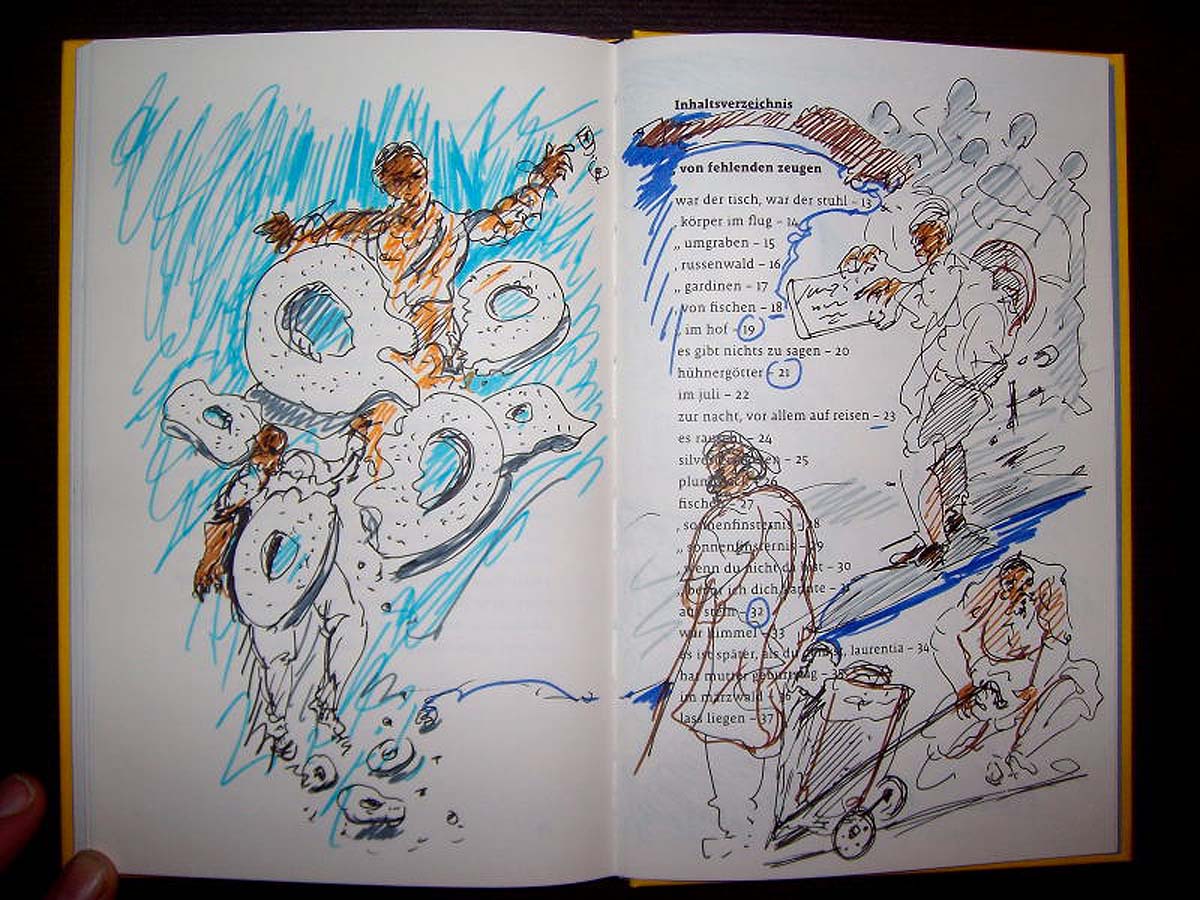 Inhaltsverzeichnis
von fehlenden zeugen
war der tisch, war der stuhl – 13
„ körper im flug – 14
„ umgraben – 15
„ russenwald – 16
„ gardinen – 17
„ von fischen – 18
„ im hof – 19
es gibt nichts zu sagen – 20
hühnergötter – 21
im juli – 22
zur nacht, vor allem auf reisen – 23
es rauscht – 24
– 25
– 26
fischen – 27
„ sonnenfinsternis – 28
„ sonnenfinsternis – 29
„ wenn du nicht da bist – 30
„ bevor ich dich kannte – 31
auf stein – 32
war himmel – 33
es ist später, als du denkst, laurentia – 34
hat mutter geburtstag – 35
im märzwald – 36
lass liegen – 37